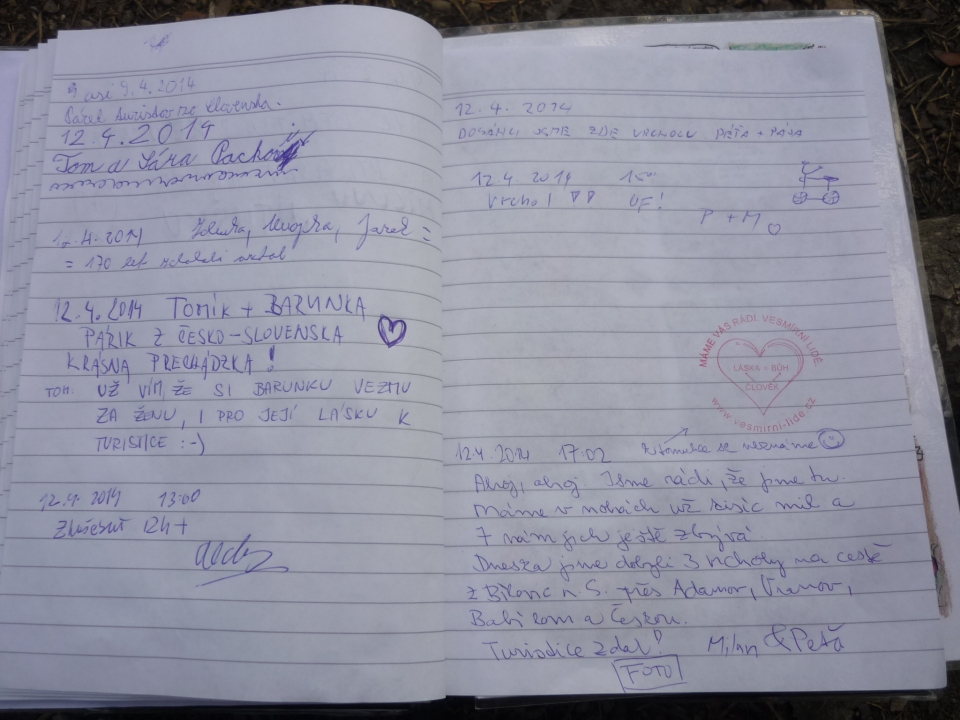 asi 9.4.2014
Párek turistov zo Slovenska.
12.4.2014
Tom a Sára
12.4.2014 Jarek =
= 170 let
12.4.2014 TOMÍK + BARUNKA
PÁRIK Z ČESKO-SLOVENSKA
KRÁSNA PRECHÁDZKA!
TOM: UŽ VÍM, ŽE SI BARUNKU VEZMU
ZA ŽENU, I PRO JEJÍ LÁSKU K
TURISTICE :-)
12.4.2014 13:00
12.4.2014
DOSÁHLI JSME ZDE VRCHOLU PÉŤA + PÁJA
12.4.2014 15⁰⁰
Vrchol UF!
P + M
MÁME VÁS RÁDI. VESMÍRNÍ LIDÉ.
LÁSKA = BŮH
ČLOVĚK
www.vesmirni-lide.cz
12.4.2014 17:02 se neznáme
Ahoj, ahoj Jsme rádi, že jsme tu.
Máme v nohách už tisíc mil a
7 nám jich ještě zbývá.
Dneska jsme dobyli 3 vrcholy na cestě
z Bílovic n. S. přes Adamov, Vranov,
Babí lom a Českou.
Turistice zdar! Milan & Peťa
FOTO